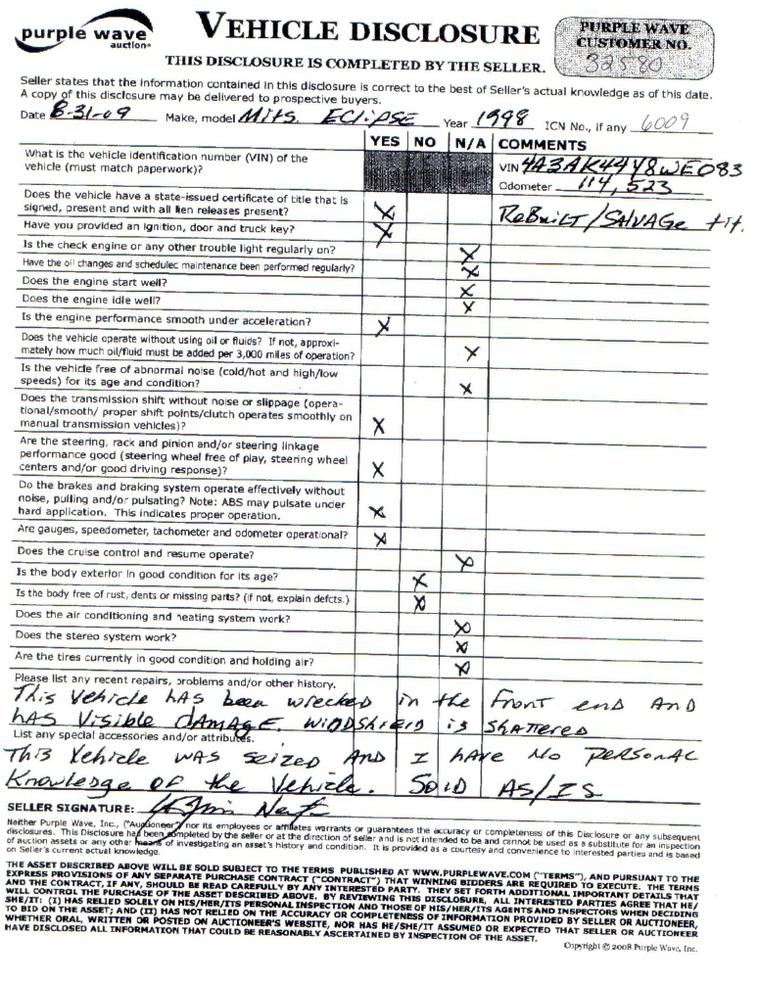 purple wave
auction
VEHICLE DISCLOSURE
THIS DISCLOSURE IS COMPLETED BY THE SELLER.
PURPLE WAVE
CUSTOMER NO.
32580
Seller states that the information contained in this disclosure is correct to the best of Seller's actual knowledge as of this date.
A copy of this disclosure may be delivered to prospective buyers.
Date 8-31-09 Make, model Mits. Eclipse Year 1998 ICN No., if any 6009
YES NO N/A COMMENTS
What is the vehicle identification number (VIN) of the
vehicle (must match paperwork)?
VIN 4A3AK44Y8WE083
Odometer 114,523
Does the vehicle have a state-issued certificate of title that is
signed, present and with all lien releases present? X ReBuilt/SAlVAGe tit.
Have you provided an ignition, door and truck key? X
Is the check engine or any other trouble light regularly on? X
Have the oil changes and scheduled maintenance been performed regularly? X
Does the engine start well? X
Does the engine idle well? X
Is the engine performance smooth under acceleration? X
Does the vehicle operate without using oil or fluids? If not, approxi-
mately how much oil/fluid must be added per 3,000 miles of operation? X
Is the vehicle free of abnormal noise (cold/hot and high/low
speeds) for its age and condition? X
Does the transmission shift without noise or slippage (opera-
tional/smooth/ proper shift points/clutch operates smoothly on
manual transmission vehicles)? X
Are the steering, rack and pinion and/or steering linkage
performance good (steering wheel free of play, steering wheel
centers and/or good driving response)? X
Do the brakes and braking system operate effectively without
noise, pulling and/or pulsating? Note: ABS may pulsate under
hard application. This indicates proper operation. X
Are gauges, speedometer, tachometer and odometer operational? X
Does the cruise control and resume operate? X
Is the body exterior in good condition for its age? X
Is the body free of rust, dents or missing parts? (if not, explain defcts.) X
Does the air conditioning and heating system work? X
Does the stereo system work? X
Are the tires currently in good condition and holding air? X
Please list any recent repairs, problems and/or other history.
This Vehicle hAs been wrecked in the Front end AND
hAS Visible dAMAGE. WINDShield is ShAttered
List any special accessories and/or attributes.
This Vehicle WAS Seized AND I hAve No personAl
Knowledge of the Vehicle. Sold AS/IS
SELLER SIGNATURE:
Neither Purple Wave, Inc., ("Auctioneer") nor its employees or affiliates warrants or guarantees the accuracy or completeness of this Disclosure or any subsequent
disclosures. This Disclosure has been completed by the seller or at the direction of seller and is not intended to be and cannot be used as a substitute for an inspection
of auction assets or any other means of investigating an asset's history and condition. It is provided as a courtesy and convenience to interested parties and is based
on Seller's current actual knowledge.
THE ASSET DESCRIBED ABOVE WILL BE SOLD SUBJECT TO THE TERMS PUBLISHED AT WWW.PURPLEWAVE.COM ("TERMS"), AND PURSUANT TO THE
EXPRESS PROVISIONS OF ANY SEPARATE PURCHASE CONTRACT ("CONTRACT") THAT WINNING BIDDERS ARE REQUIRED TO EXECUTE. THE TERMS
AND THE CONTRACT, IF ANY, SHOULD BE READ CAREFULLY BY ANY INTERESTED PARTY. THEY SET FORTH ADDITIONAL IMPORTANT DETAILS THAT
WILL CONTROL THE PURCHASE OF THE ASSET DESCRIBED ABOVE. BY REVIEWING THIS DISCLOSURE, ALL INTERESTED PARTIES AGREE THAT HE/
SHE/IT: (I) HAS RELIED SOLELY ON HIS/HER/ITS PERSONAL INSPECTION AND THOSE OF HIS/HER/ITS AGENTS AND INSPECTORS WHEN DECIDING
TO BID ON THE ASSET; AND (II) HAS NOT RELIED ON THE ACCURACY OR COMPLETENESS OF INFORMATION PROVIDED BY SELLER OR AUCTIONEER,
WHETHER ORAL, WRITTEN OR POSTED ON AUCTIONEER'S WEBSITE, NOR HAS HE/SHE/IT ASSUMED OR EXPECTED THAT SELLER OR AUCTIONEER
HAVE DISCLOSED ALL INFORMATION THAT COULD BE REASONABLY ASCERTAINED BY INSPECTION OF THE ASSET.
Copyright © 2008 Purple Wave, Inc.